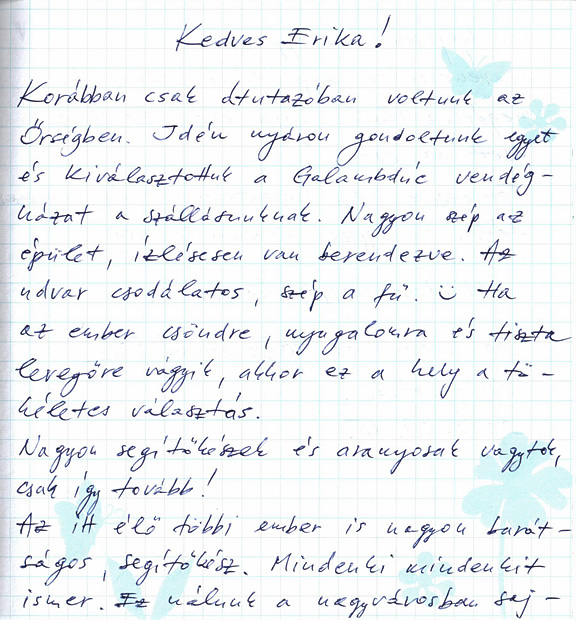 Kedves Erika!
Korábban csak átutazóban voltunk az
Őrségben. Idén nyáron gondoltunk egyet
és kiválasztottuk a Galambdúc vendég-
házat a szállásunknak. Nagyon szép az
épület, ízlésesen van berendezve. Az
udvar csodálatos, szép a fű. ☺ Ha
az ember csöndre, nyugalomra és tiszta
levegőre vágyik, akkor ez a hely a tö-
kéletes választás.
Nagyon segítőkészek és aranyosak vagytok,
csak így tovább!
Az itt élő többi ember is nagyon barát-
ságos, segítőkész. Mindenki mindenkit
ismer. Ez nálunk a nagyvárosban saj-